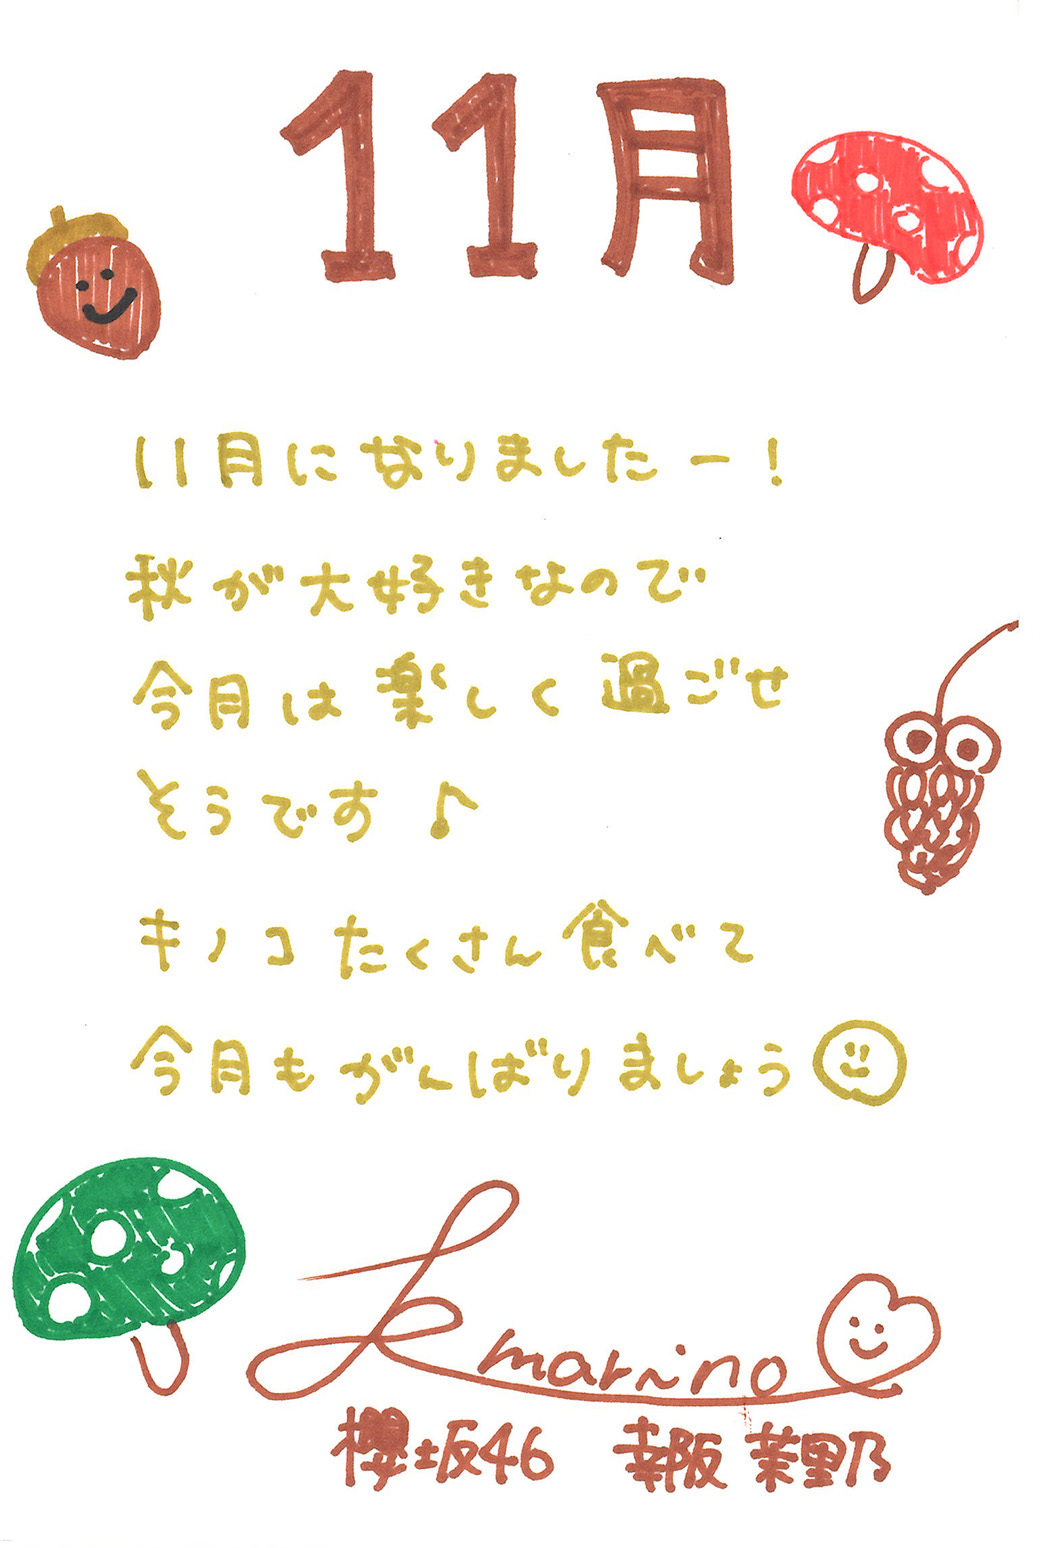 11月
11月になりましたー!
秋が大好きなので
今月は楽しく過ごせ
そうです♪
キノコたくさん食べて
今月もがんばりましょう
k marino
櫻坂46 幸阪茉里乃